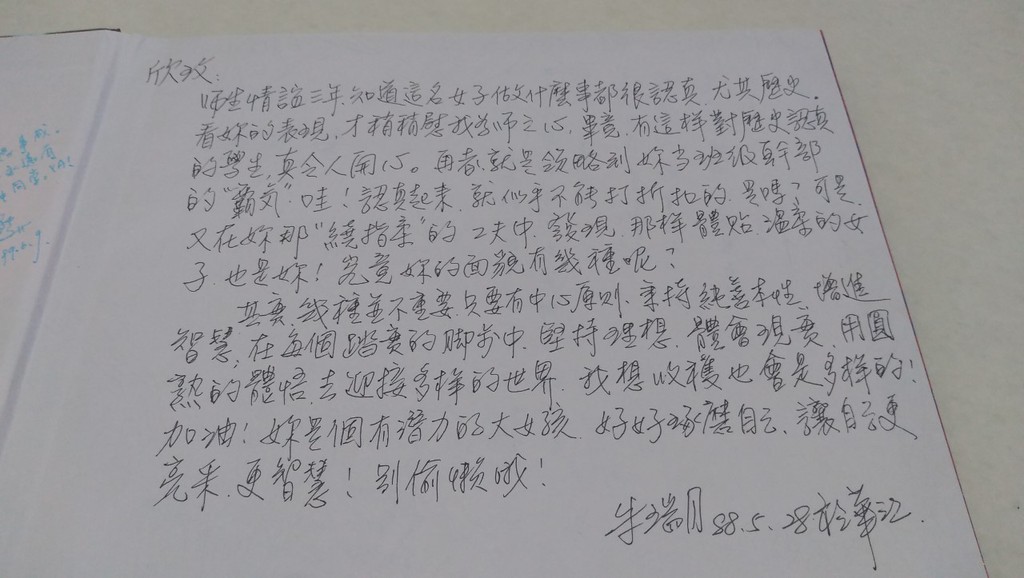 欣玫:
師生情誼三年,知道這名女子做什麼事都很認真,尤其歷史。
看妳的表現,才稍稍慰我為師之心,畢竟,有這樣對歷史認真
的學生,真令人開心。再者就是領略到妳當班級幹部
的"霸気",哇!認真起來,就似乎不能打折扣的,是嗎?可是,
又在妳那"繞指柔"的工夫中,發現,那样體貼、溫柔的女
子,也是妳!究竟妳的面貌有幾種呢?
其實,幾種並不重要,只要有中心原則,秉持純善本性,增進
智慧,在每個踏實的腳步中,堅持理想,體會現實,用圓
熟的體悟,去迎接多样的世界,我想收穫也會是多样的!
加油!妳是個有潛力的大女孩,好好琢磨自己,讓自己更
亮采,更智慧!別偷懶哦!
朱瑞月 88.5.28於華江.